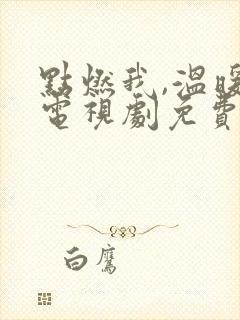 點燃我,溫暖
電視劇免費
白鷹